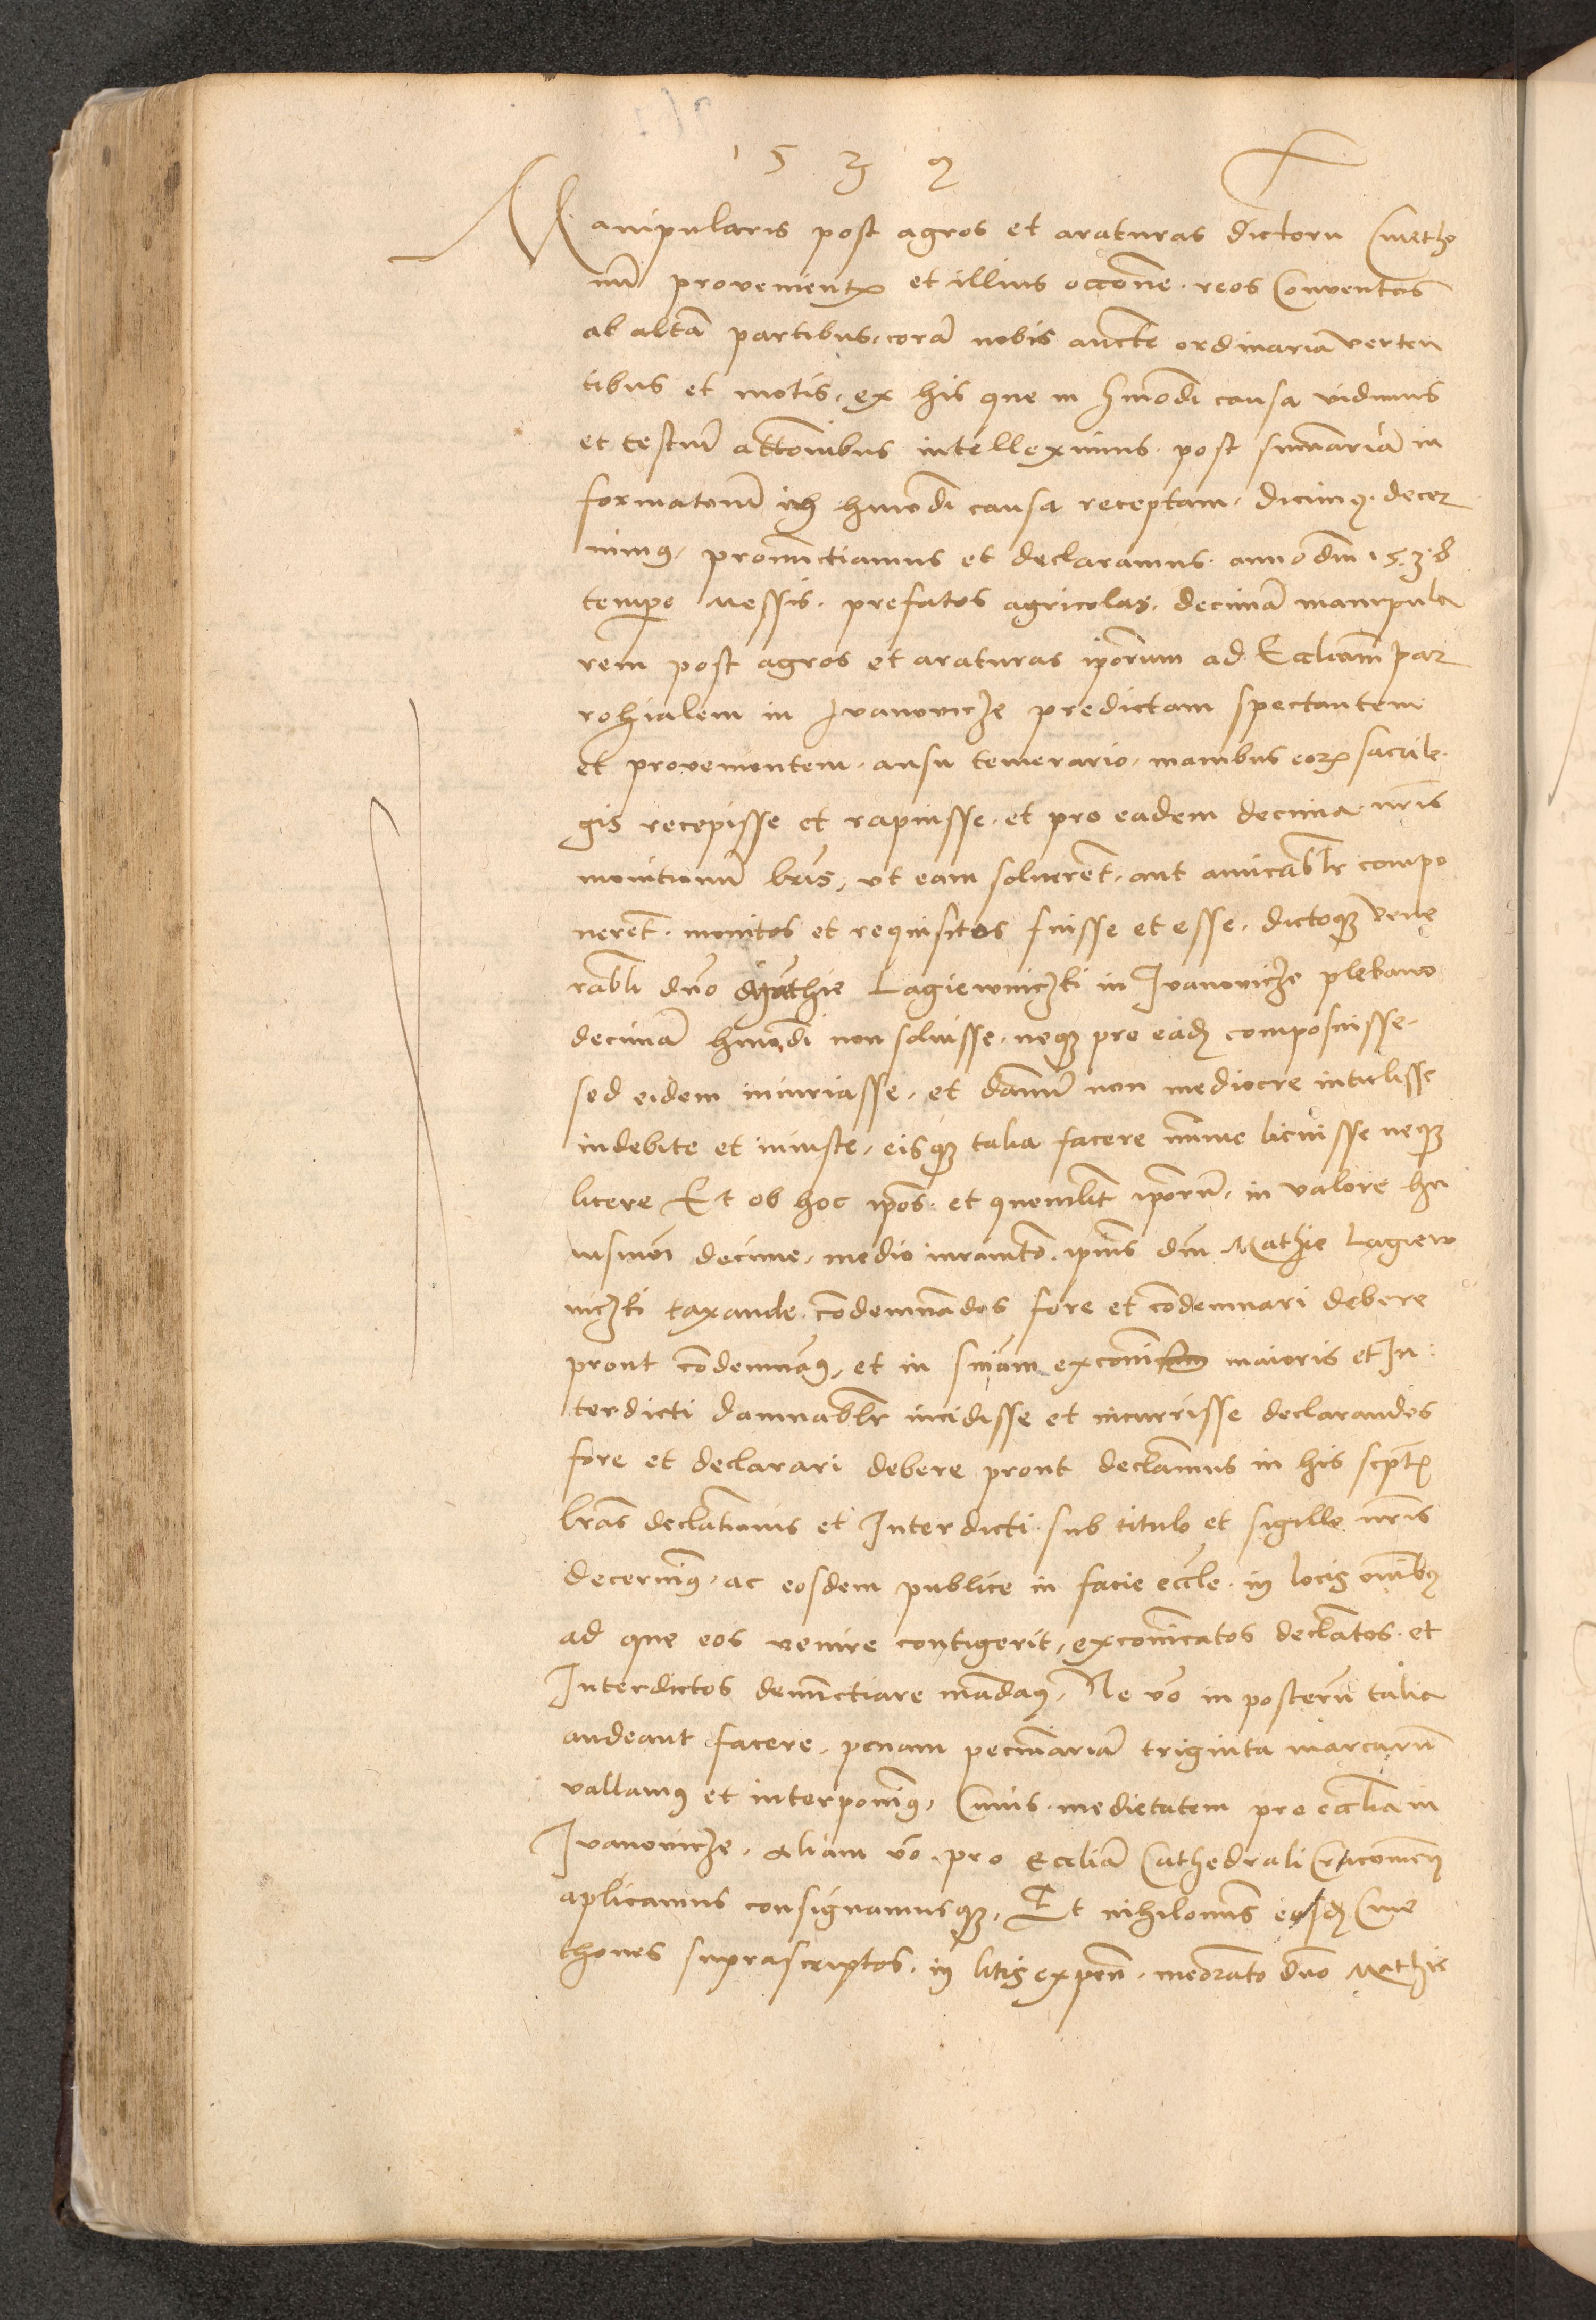 1 5 3 9
Manipularis post agros et araturas dictoru Cmetho
nu᷃ provenient᷃ et illius occo᷃ne reos Conventos
ab alt᷃a partibus, cora᷃ nobis aucte᷃ ordinaria᷃ verten
tibus et motis, ex his que in hm᷃odi causa vidimus
et testiu᷃ atto᷃nibus intelleximus post sum᷃aria᷃ in
formatone᷃ in hmo᷃di causa receptam, dicimꝰ decer
nimꝰ, pronunctiamus et declaramus anno dni᷃ 1538
tempe᷃ Messis, prefatos agricolas, decima᷃ manipula
rem post agros et araturas ipo᷃rum ad Eccli᷃am par
rohialem in Jvanovicze predictam spectantem
et provenientem, ausu temerario, manibus eoꝝ sacrile
gis recepisse et rapuisse, et pro eadem decima nr᷃is
monitionu᷃ lr᷃is, ut eam solverent᷃, aut amicabl᷃r compo
nerent᷃, monitos et requisitos fuisse et esse, dictoqꝫ vene
rabl᷃i dn᷃o Mathie Lagiewniczki in Jvanovicze plebano
decima᷃ hmo᷃di non solvisse, neqꝫ pro ead᷃ composuisse
sed eidem iniuriasse, et damnu᷃ non mediocre intulisse
indebite et iniuste, eisqꝫ talia facere mi᷃me licuisse neqꝫ
licere Et ob hoc ipo᷃s et quemlibt᷃ ipo᷃ru᷃, in valore hu
iusmo᷃i decime, medio iuram᷃to ipi᷃us dni᷃ Mathie Lagiew
niczki taxande co᷃demna᷃dos fore et co᷃demnari debere
prout co᷃demnam᷃ꝰ, et in sni᷃am exco᷃mi᷃ maioris et In
terdicti damnabl᷃r incidisse et incurrisse declarandos
fore et declarari debere prout decla᷃mus in his scpt᷃
lr᷃as decla᷃tionis et Interdicti sub titulo et sigillo nr᷃is
decernim᷃ꝰ, ac eosdem publice in facie eccl᷃e in locis om᷃ibꝰ
ad que eos venire contigerit, exco᷃icatos decla᷃tos et
Interdictos denunctiare ma᷃damꝰ, Ne vo᷃ in posteru᷃ talia
audeant facere, penam pecuniaria᷃ triginta marcaru᷃
vallamꝰ et interponim᷃ꝰ, Cuius medietatem pro eccli᷃a in
Jvanovicze, aliam vo᷃ pro Eccli᷃a Cathedrali Cracovien᷃
aplicamus consignamusqꝫ, Et nihilomi᷃s eosd᷃ Cme
thones suprascriptos, in litis expen᷃, memorato dn᷃o Mathie